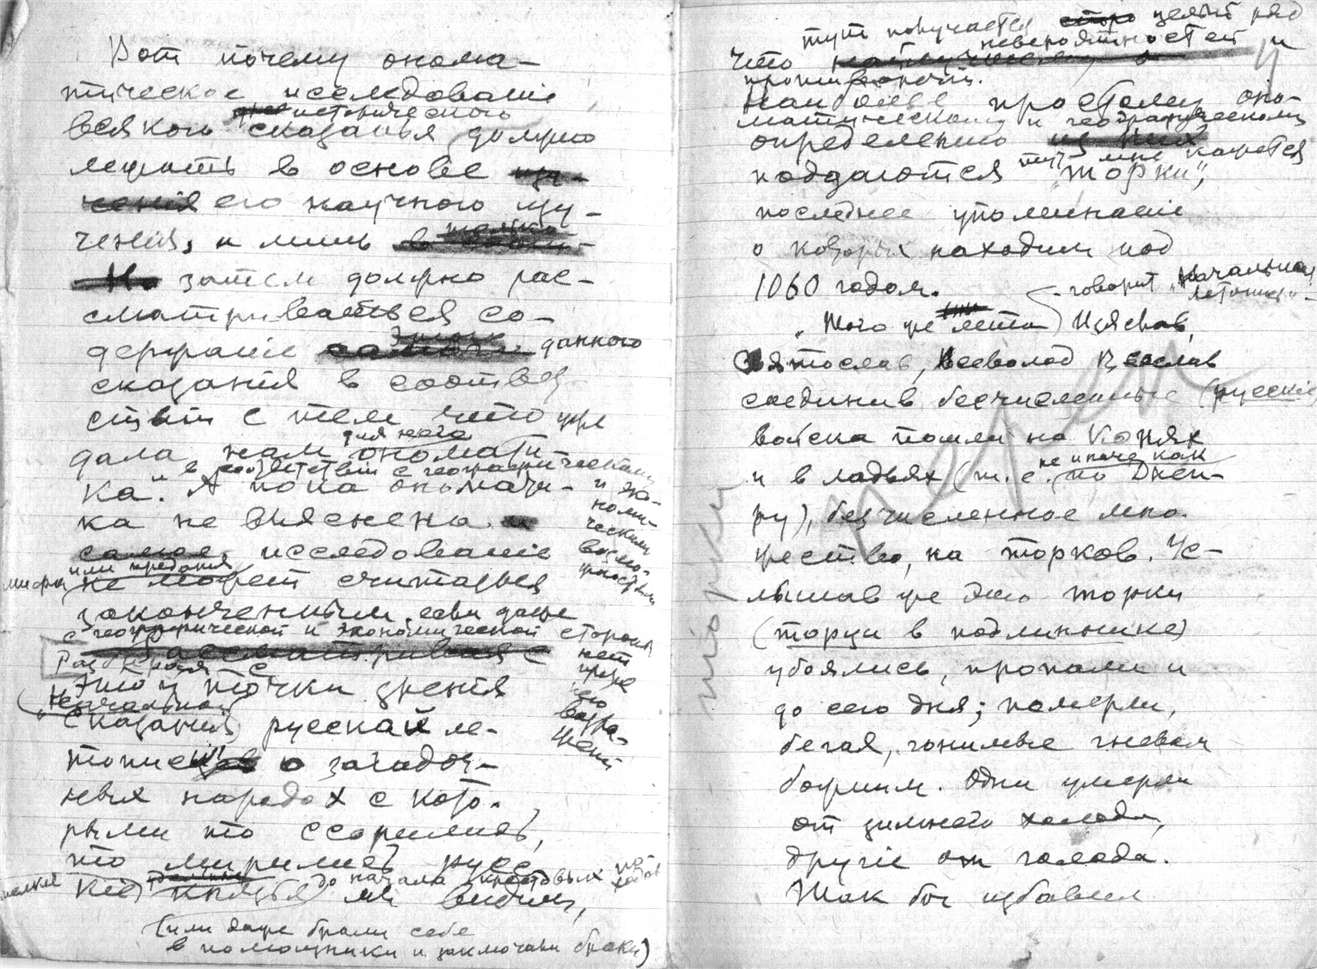 Вот почему онома-
тическое исследованіе
всякого историческаго
сказанья должно
лежать в основе
его научного изу-
ченія, и лишь
затем должно рас-
сматриваться со-
держаніе данного
сказанія в соответ-
ствіи с тем что уже
дала нам для него ономати-
ка". А пока ономати-
в соответствіи с географическими
и эко-
номи-
ческими
возмо-
жностями
ка не выяснена
исследованіе
мифа или преданія
не может считаться
законченным, если даже
с географической и экономической стороны
нет
против
него
возра-
женій
Разбирая с
этой точки зренія
"Сказанія Начальной
русской ле-
тописи" о загадоч-
ных народах с кото-
рыми то ссорились,
то мирились русс-
кіе мелкія князья до начала крестовых походов
мы видим,
(или даже брали себе
в помощники и заключали браки)
что тут получается целый ряд
невероятностей и
противоречій.
Наиболее простому оно-
матическому и географическому
определенію
поддаются тут мне кажется
"торки",
последнее упоминаніе
о которых находим под
1060 годом.
"Того же лета (говорит "Начальная
летопись") Изяслав,
Святослав, Всеволод Всеслав
соединив безчисленные (русскіе)
войска пошли на конях
и в ладьях (т. е. не иначе как
по Днеп-
ру), безчисленное мно-
жество, на торков. Ус-
лышав же это торки
(торци в подлиннике)
убоялись, пропали и
до сего дня; померли,
бегая, гонимые гневом
божиим. Одни умерли
от зимнего холода,
другіе от голода.
Так бог избавил
торки